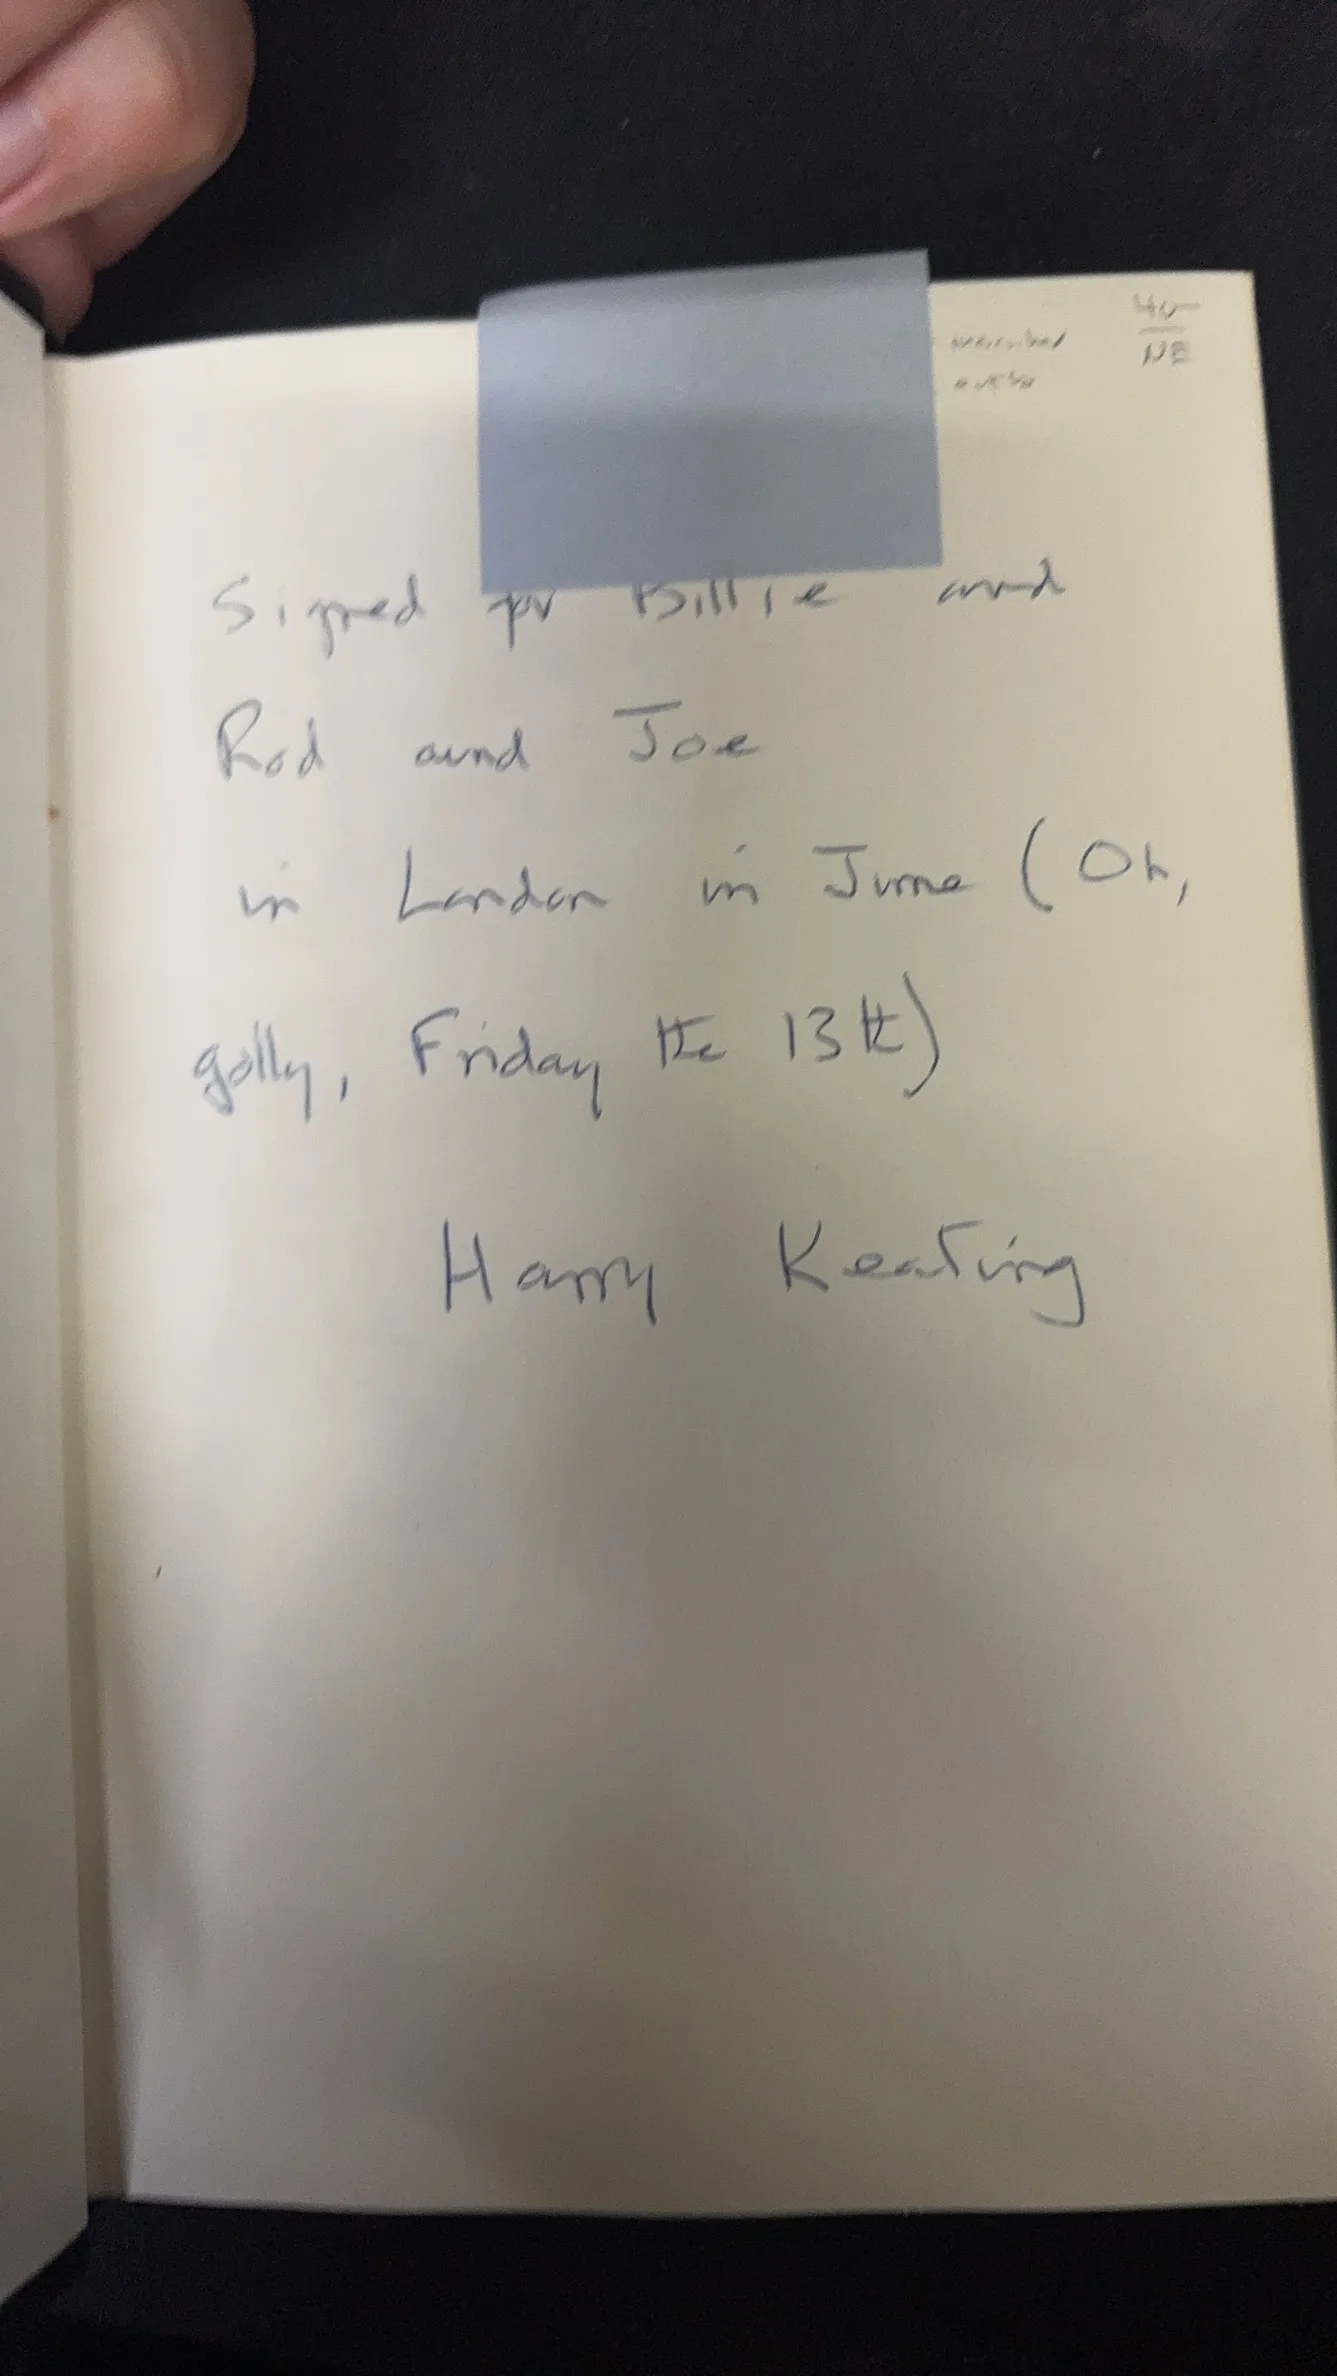 40-
NE
inscribed
author
Signed for Billie and
Rod and Joe
in London in June (Oh,
golly, Friday the 13th)
Harry Keating